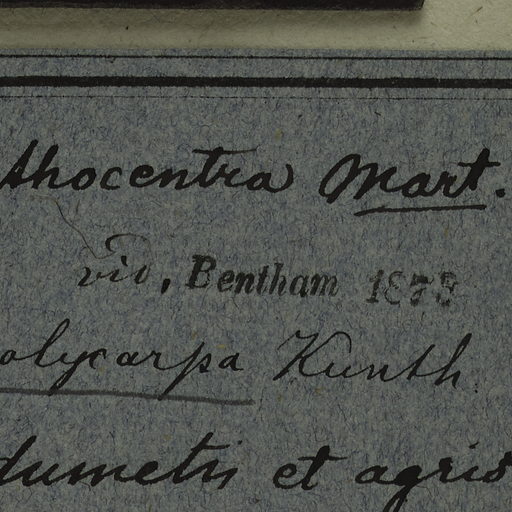 thocentra Mart.
vid, Bentham 1878
olycarpa Kunth
dumetis et agris